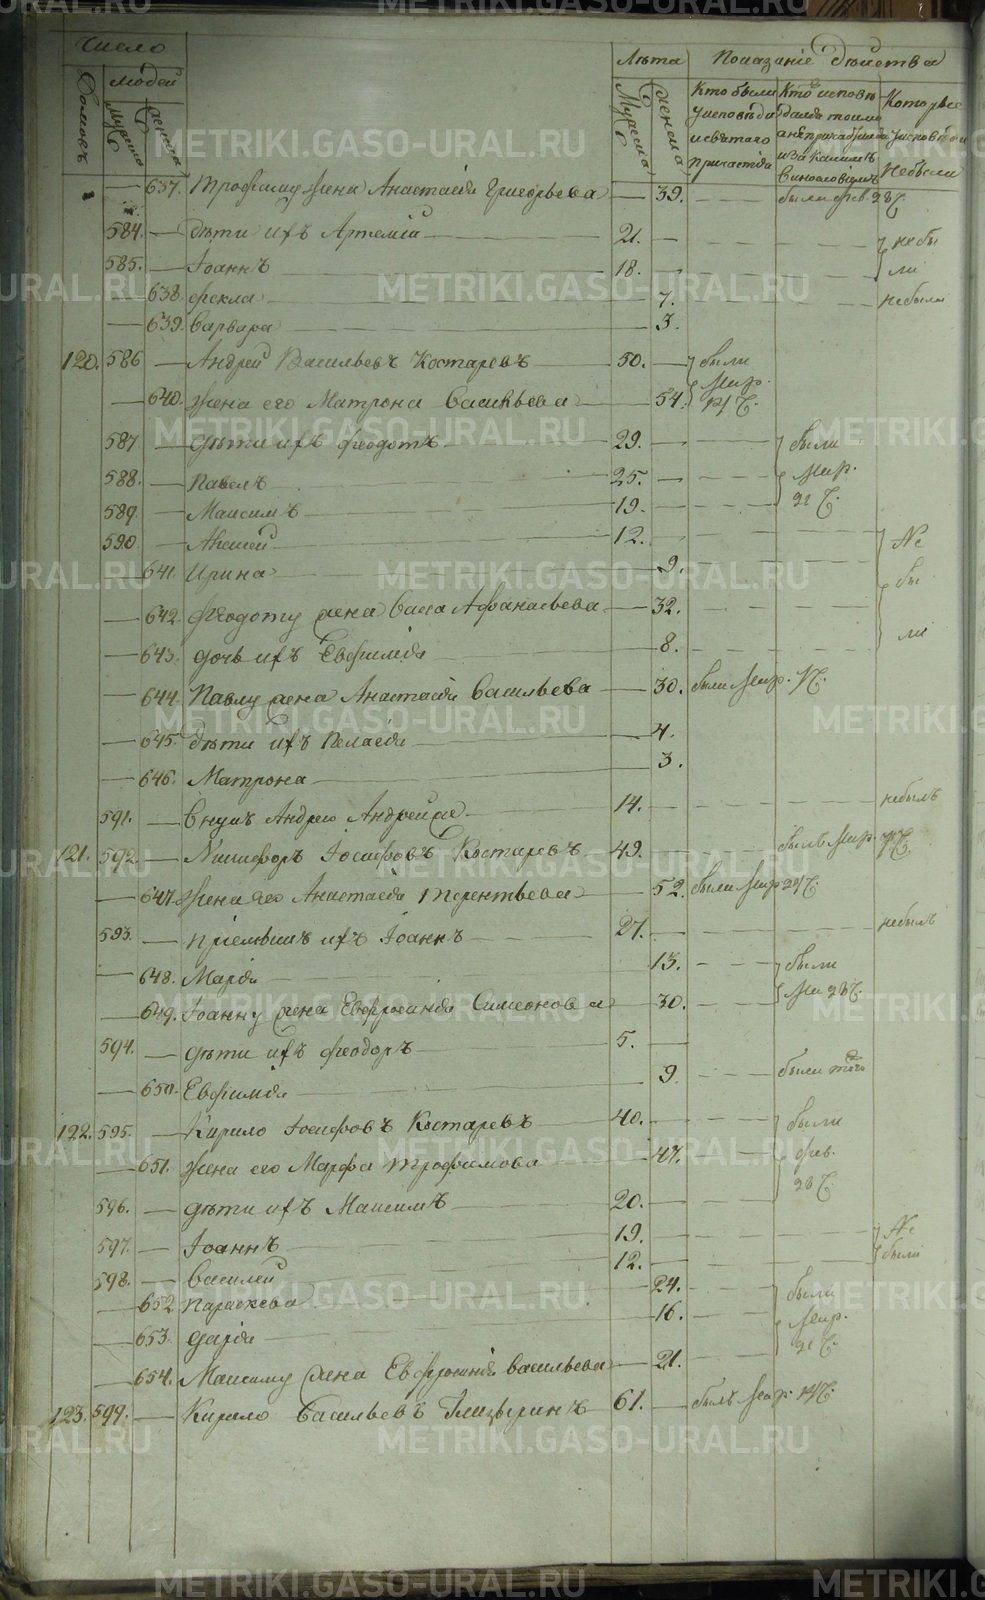 Число
Домовъ
людей
мужеска
женска
Лѣта
Мужеска
женска
Показанiе дѣйства
Кто были у исповѣди и святаго причастiя
Кто исповѣ дался токмо а не причастился и за какимъ виновословiемъ
Которые у исповѣди не были
637. Трофиму жена Анастасiя Григорьева 39. были фев. 28 Ч.
584. дѣти ихъ Артемiй 21.
585. Iоаннъ 18. не бы ли
638. Фекла 7. не были
639. Варвара 3.
120. 586 Андрей Васильевъ Костаревъ 50. были
640. жена его Матрона Васильева 54. Мар. 14 Ч.
587. дѣти ихъ Феодотъ 29. были
588. Павелъ 25. Мар.
589. Максимъ 19. 21 Ч.
590. Алексей 12. Не
641. Ирина 9. бы
642. Феодоту жена Васса Афанасьева 32. ли
643. дочь ихъ Евфимiя 8.
644. Павлу жена Анастасiя Васильева 30. были Мар. 14.
645. дѣти ихъ Пелагiя 4.
646. Матрона 3.
591. Внукъ Андрею Андрей 14. не былъ
121. 592. Никифоръ Iосифовъ Костаревъ 49. былъ Мар. Ч.
647. жена его Анастасiя Терентьева 52. были Мар 21 Ч.
593. прiемышъ ихъ Iоаннъ 27. не былъ
648. Марiя 13. были
649. Iоанну жена Евфросинiя Симеонова 30. Ма 28 Ч.
594. дѣти ихъ Феодоръ 5.
650. Евфимiя 9. были того
122. 595. Кирило Iосифовъ Костаревъ 40. были
651. жена его Марфа Трофимова 47. фев.
596. дѣти ихъ Максимъ 20. 28 Ч.
597. Iоаннъ 19. Не
598. Василей 12. были
652. Параскева 24. были
653. Дарiя 16. Мар.
654. Максиму жена Евфросинiя Васильева 21. 21 Ч.
123. 599. Кирило Васильевъ 61. былъ Мар. 14 Ч.
METRIKI.GASO-URAL.RU